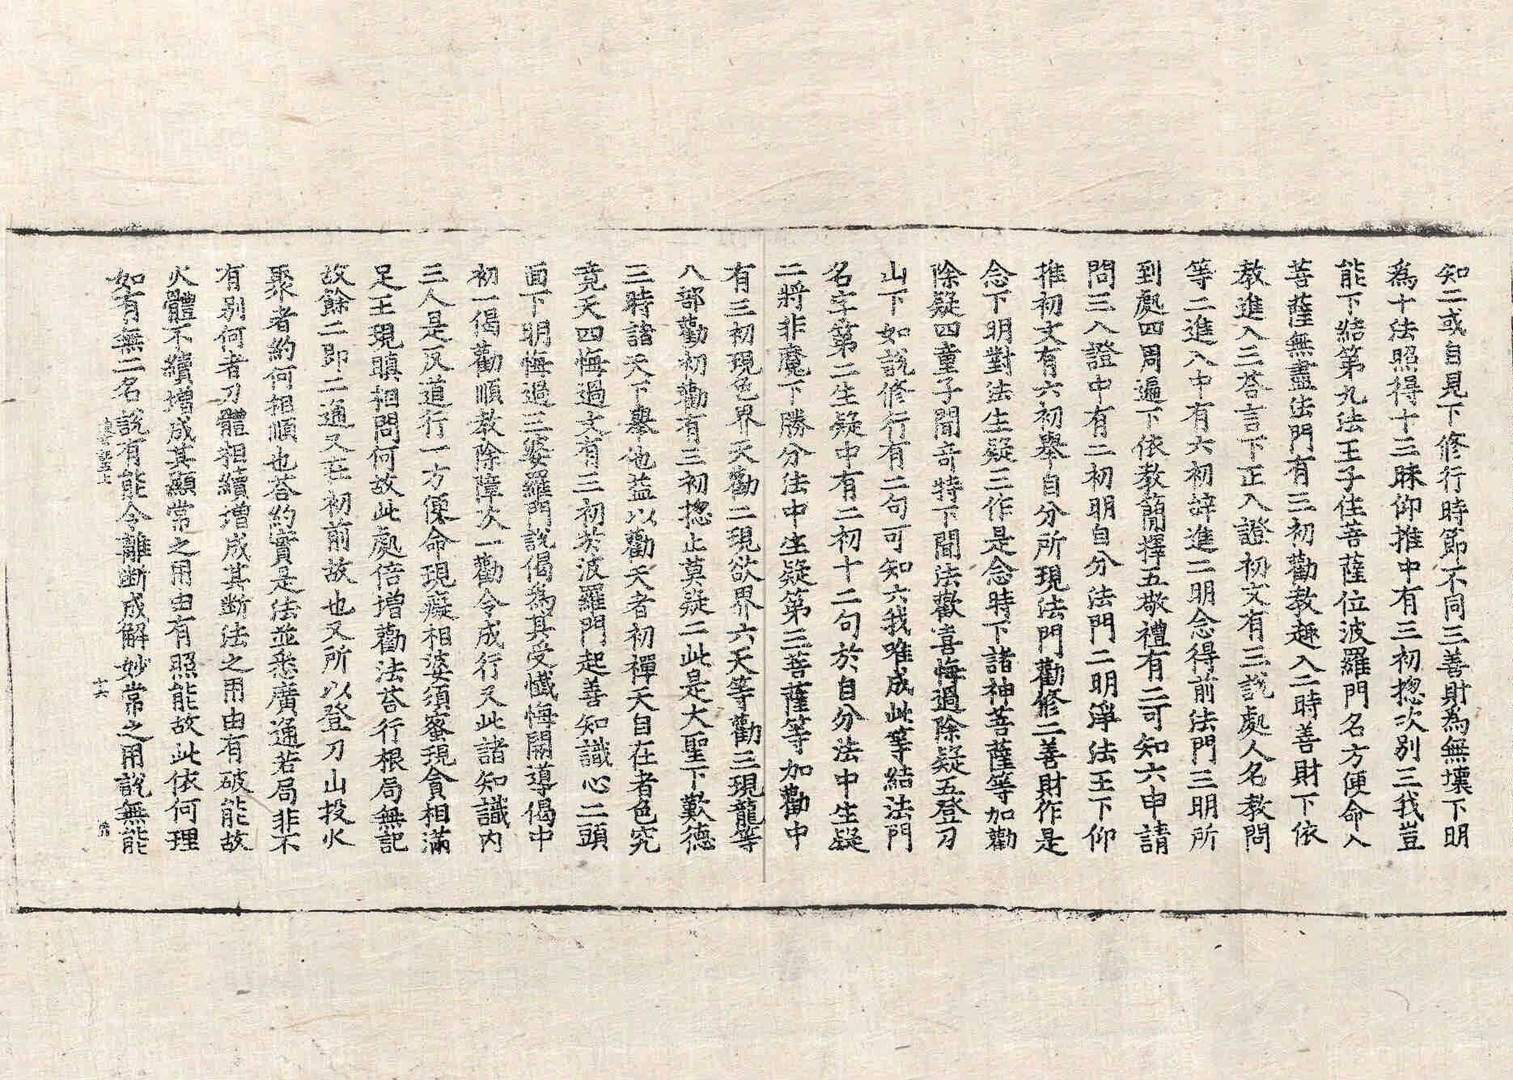 知二或自見下修行時節不同三善財為無壞下明
為十法照得十三昧仰推中有三初揔次別三我豈
能下結第九法王子住菩薩位波羅門名方便命人
菩薩無盡法門有三初勸教趣入二時善財下依
教進入三荅言下正入證初文有三說處人名教問
等二進入中有六初辝進二明念得前法門三明所
到處四周遍下依教蕳擇五敬禮有二可知六申請
問三入證中有二初明自分法門二明淨法王下仰
推初文有六初舉自分所現法門勸修二善財作是
念下明對法生疑三作是念時下諸神菩薩等加勸
除疑四童子聞竒特下聞法歡喜悔過除疑五登刀
山下如說修行有二句可知六我唯成此等結法門
名字第二生疑中有二初十二句於自分法中生疑
二將非魔下勝分法中生疑第三菩薩等加勸中
有三初現色界天勸二現欲界六天等勸三現龍等
八部勸初勸有三初揔止莫疑二此是大聖下歎德
三時諸天下舉他益以勸天者初禪天自在者色究
竟天四悔過文有三初於波羅門起善知識心二頭
面下明悔過三婆羅門說偈為其受懺悔開導偈中
初一偈勸順教除障次一勸令成行又此諸知識內
三人是反道行一方便命現癡相婆須蜜現貪相滿
足王現瞋相問何故此處倍增勸法荅行根局無記
故餘二即二通又在初前故也又所以登刀山投火
聚者約何相順也荅約實是法並悉廣通若局非不
有別何者刀體相續増成其断法之用由有破能故
火體不續增成其顯常之用由有照能故此依何理
如有無二名說有能令離断成解妙常之用說無能
十六